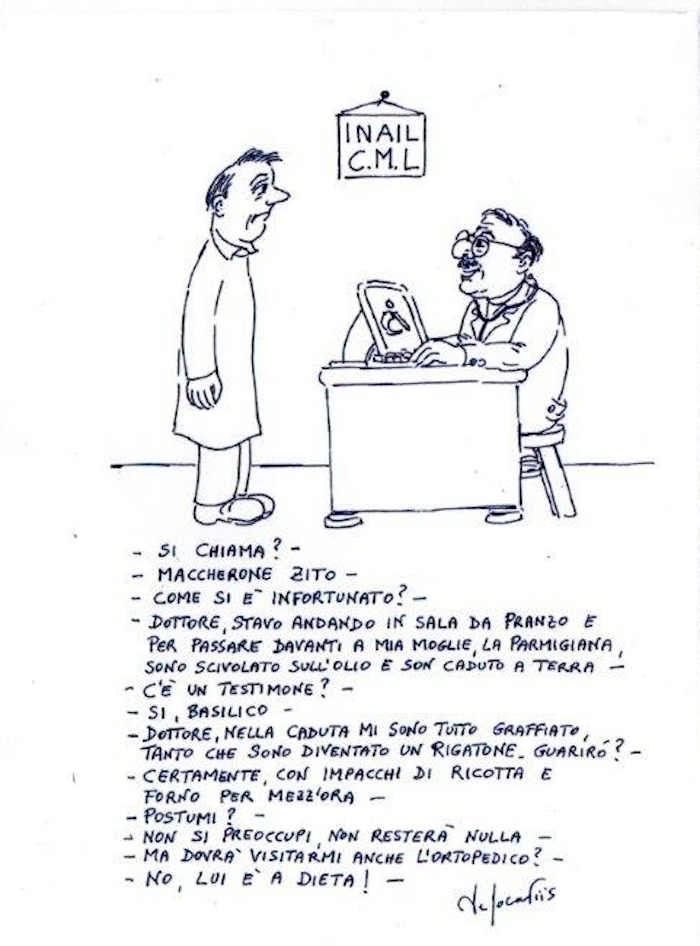 INAIL
C.M.L
- SI CHIAMA? -
- MACCHERONE ZITO -
- COME SI È INFORTUNATO? -
- DOTTORE, STAVO ANDANDO IN SALA DA PRANZO E
PER PASSARE DAVANTI A MIA MOGLIE, LA PARMIGIANA,
SONO SCIVOLATO SULL'OLIO E SON CADUTO A TERRA -
- C'È UN TESTIMONE? -
- SI, BASILICO -
- DOTTORE, NELLA CADUTA MI SONO TUTTO GRAFFIATO,
TANTO CHE SONO DIVENTATO UN RIGATONE. GUARIRÒ? -
- CERTAMENTE, CON IMPACCHI DI RICOTTA E
FORNO PER MEZZ'ORA -
- POSTUMI? -
- NON SI PREOCCUPI, NON RESTERÀ NULLA -
- MA DOVRÀ VISITARMI ANCHE L'ORTOPEDICO? -
- NO, LUI È A DIETA! -